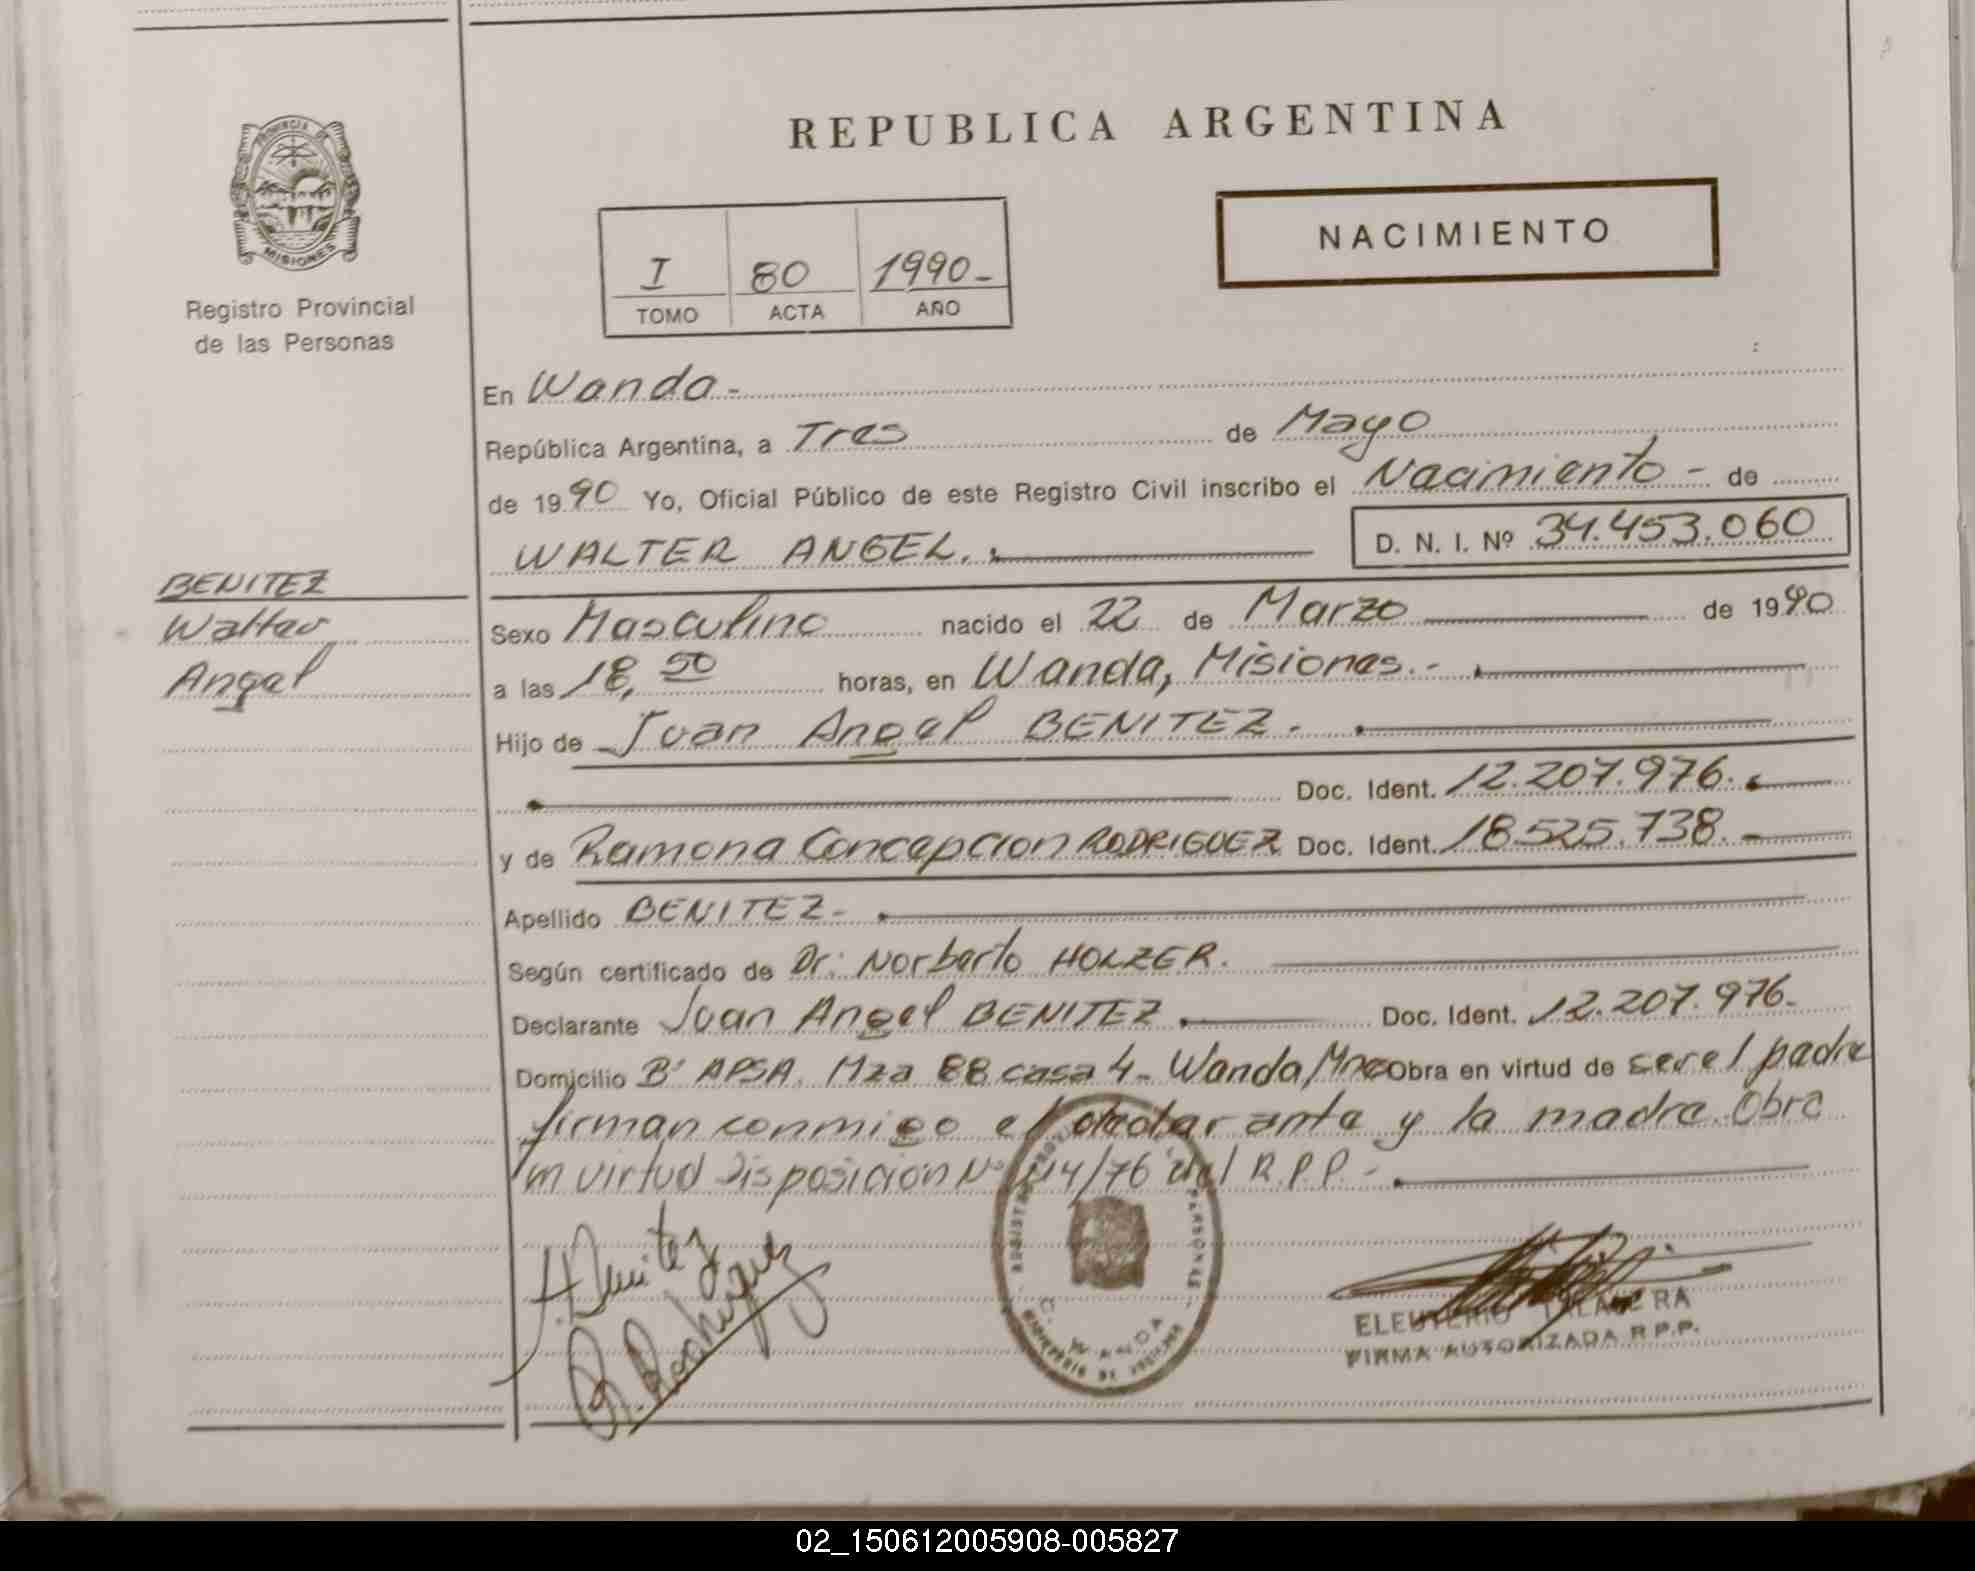 REPUBLICA ARGENTINA
PROVINCIA DE
MISIONES
Registro Provincial
de las Personas
NACIMIENTO
I 80 1990-
TOMO ACTA AÑO
En Wanda-
República Argentina, a Tres de Mayo
de 1990 Yo, Oficial Público de este Registro Civil inscribo el Nacimiento - de
WALTER ANGEL. D. N. I. Nº 34.453.060
BENITEZ
Walter
Angel
Sexo Masculino nacido el 22 de Marzo de 1990
a las 18,50 horas, en Wanda, Misiones.-
Hijo de Juan Angel BENITEZ.
Doc. Ident. 12.207.976.
y de Ramona Concepcion RODRIGUEZ Doc. Ident. 18.525.738.-
Apellido BENITEZ-
Según certificado de Dr. Norberto HOLZER.
Declarante Juan Angel BENITEZ Doc. Ident. 12.207.976-
Domicilio B' APSA. Mza 88 casa 4- Wanda, Mnes Obra en virtud de ser el padre
firman conmigo el declarante y la madre. Obra
en virtud Disposición Nº 114/76 del R.P.P.-
J. Benitez
R. Rodriguez
WANDA
ELEUTERIO TALAVERA
FIRMA AUTORIZADA R.P.P.
02_150612005908-005827